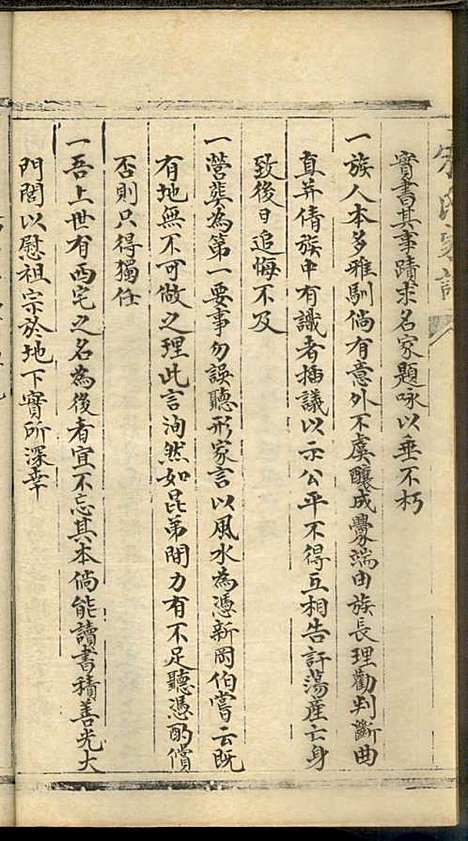 實書其事蹟求名家題咏以垂不朽
一族人本多雅馴倘有意外不虞釀成釁端由族長理勸判斷曲
直并倩族中有識者插議以示公平不得互相告訐蕩產亡身
致後日追悔不及
一營葬為第一要事勿誤聽形家言以風水為憑新岡伯嘗云既
有地無不可做之理此言洵然如昆弟間力有不足聽憑酌償
否則只得獨任
一吾上世有西宅之名為後者宜不忘其本倘能讀書積善光大
門閭以慰祖宗於地下實所深幸